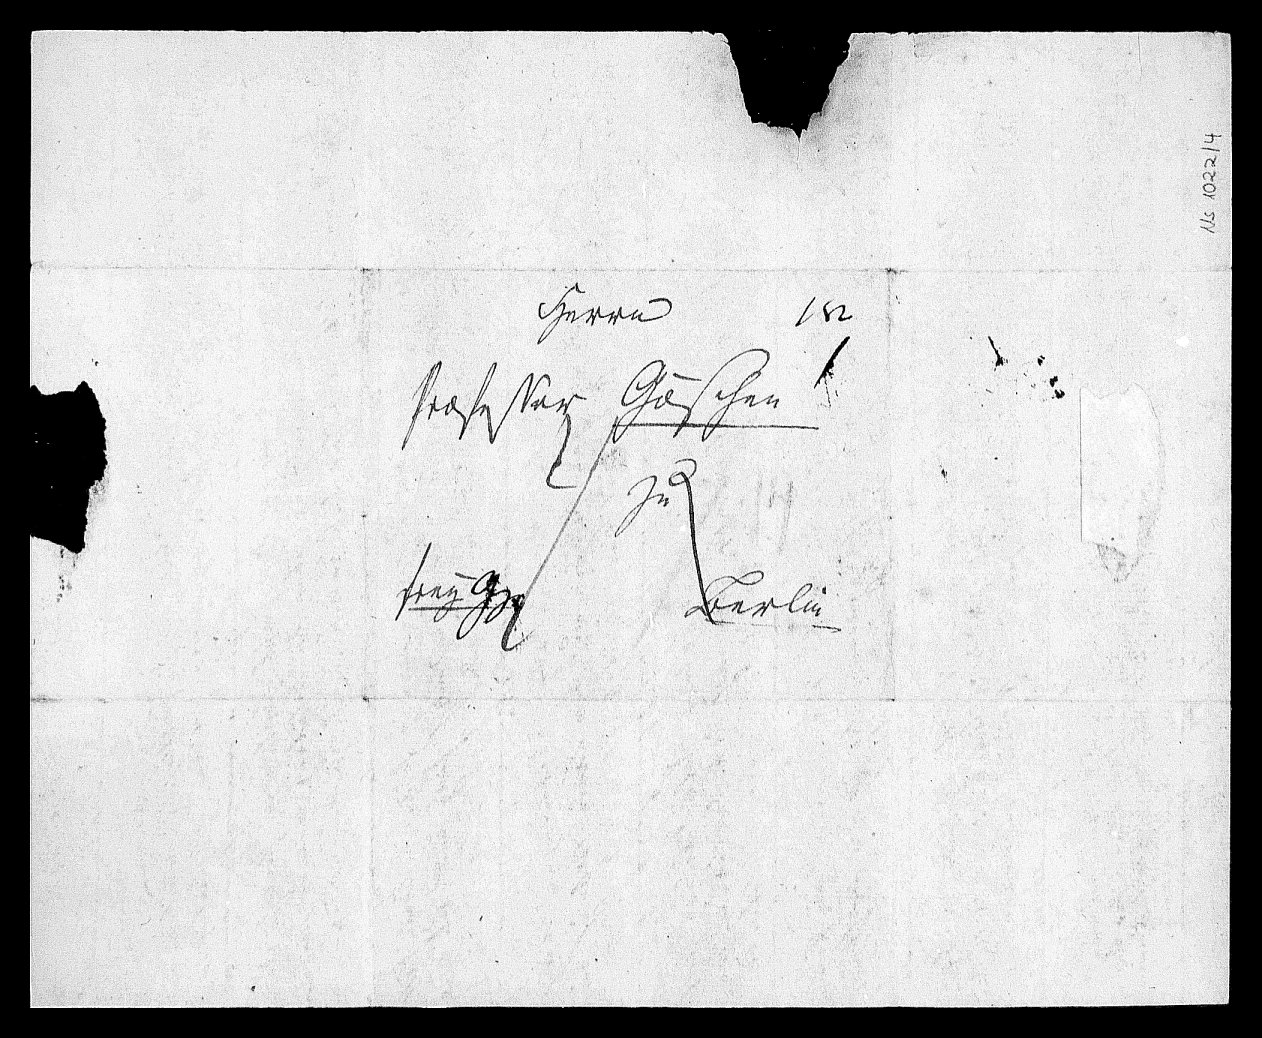 Herrn
Professor Göschen
zu
Berlin
frey
Ns 1022/4